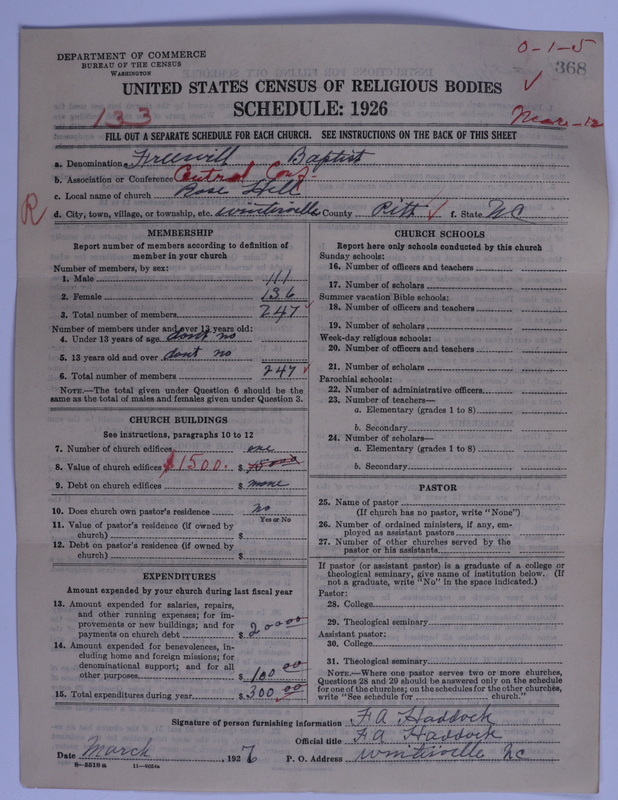 DEPARTMENT OF COMMERCE
BUREAU OF THE CENSUS
WASHINGTON
0-1-5
368
UNITED STATES CENSUS OF RELIGIOUS BODIES
SCHEDULE: 1926
133
Mar-12
FILL OUT A SEPARATE SCHEDULE FOR EACH CHURCH. SEE INSTRUCTIONS ON THE BACK OF THIS SHEET
a. Denomination Freewill Baptist
b. Association or Conference Central Conf.
c. Local name of church Rose Hill
R
d. City, town, village, or township, etc. Winterville County Pitt f. State NC
MEMBERSHIP
Report number of members according to definition of
member in your church
Number of members, by sex:
1. Male 111
2. Female 136
3. Total number of members 247
Number of members under and over 13 years old:
4. Under 13 years of age dont no
5. 13 years old and over dont no
6. Total number of members 247
NOTE.—The total given under Question 6 should be the
same as the total of males and females given under Question 3.
CHURCH BUILDINGS
See instructions, paragraphs 10 to 12
7. Number of church edifices one
8. Value of church edifices $1500. $
9. Debt on church edifices $ none
10. Does church own pastor's residence no
Yes or No
11. Value of pastor's residence (if owned by
church) $
12. Debt on pastor's residence (if owned by
church) $
EXPENDITURES
Amount expended by your church during last fiscal year
13. Amount expended for salaries, repairs,
and other running expenses; for im-
provements or new buildings; and for
payments on church debt $ 20000
14. Amount expended for benevolences, in-
cluding home and foreign missions; for
denominational support; and for all
other purposes $ 100 00
15. Total expenditures during year $ 300 00
CHURCH SCHOOLS
Report here only schools conducted by this church
Sunday schools:
16. Number of officers and teachers
17. Number of scholars
Summer vacation Bible schools:
18. Number of officers and teachers
19. Number of scholars
Week-day religious schools:
20. Number of officers and teachers
21. Number of scholars
Parochial schools:
22. Number of administrative officers
23. Number of teachers—
a. Elementary (grades 1 to 8)
b. Secondary
24. Number of scholars—
a. Elementary (grades 1 to 8)
b. Secondary
PASTOR
25. Name of pastor
(If church has no pastor, write "None")
26. Number of ordained ministers, if any, em-
ployed as assistant pastors
27. Number of other churches served by the
pastor or his assistants
If pastor (or assistant pastor) is a graduate of a college or
theological seminary, give name of institution below. (If
not a graduate, write "No" in the space indicated.)
Pastor:
28. College
29. Theological seminary
Assistant pastor:
30. College
31. Theological seminary
NOTE.—Where one pastor serves two or more churches,
Questions 28 and 29 should be answered only on the schedule
for one of the churches; on the schedules for the other churches,
write "See schedule for church."
Signature of person furnishing information F A Haddock
Official title F A Haddock
Date March , 1927 P. O. Address Winterville NC
8-5518 a